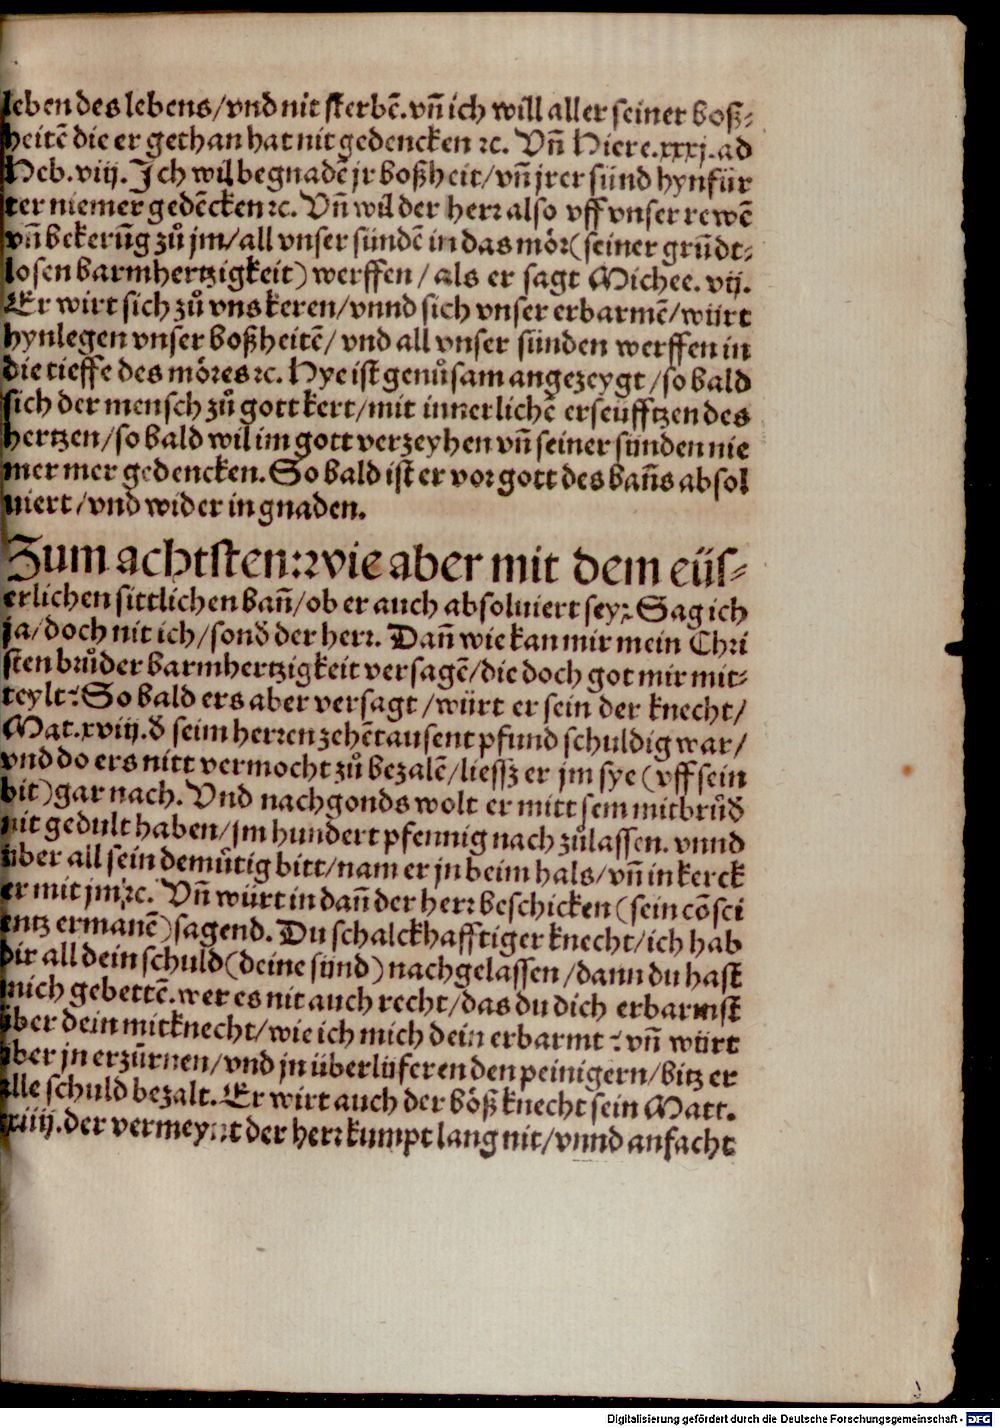 leben des lebens/vnd nit sterbē. vñ ich will aller seiner boß⸗
heitē die er gethan hat nit gedencken ꝛc. Vñ Hiere. xxxj. ad
Heb. viij. Ich wil begnadē jr boßheit/vñ jrer sünd hynfür
ter niemer gedēcken ꝛc. Vñ wil der herꝛ also vff vnser rewē
vñ bekerūg zů jm/all vnser sündē in das möꝛ (seiner grūdt⸗
losen barmhertzigkeit) werffen/ als er sagt Michee. vij.
Er wirt sich zů vns keren/vnnd sich vnser erbarmē/würt
hynlegen vnser boßheitē/ vnd all vnser sünden werffen in
die tieffe des möꝛes ꝛc. Hye ist genůsam angezeygt/so bald
sich der mensch zů gott kert/mit innerlichē erseüfftzen des
hertzen/so bald wil im gott verzeyhen vñ seiner sünden nie
mer mer gedencken. So bald ist er voꝛ gott des bañs absol
uiert/vnd wider in gnaden.
Zum achtsten: wie aber mit dem eüs⸗
erlichen sittlichen bañ/ob er auch absoluiert sey? Sag ich
ja/doch nit ich/sonđ der herꝛ. Dañ wie kan mir mein Chꝛi
sten brůder barmhertzigkeit versagē/die doch got mir mit⸗
teylt? So bald ers aber versagt/würt er sein der knecht/
Mat. xviij. đ seim herꝛen zehētausent pfund schuldig war/
vnd do ers nitt vermocht zů bezalē/liessz er jm sye (vff sein
bit) gar nach. Vnd nachgonds wolt er mitt sem mitbrůđ
nit gedult haben/jm hundert pfennig nach zůlassen. vnnd
über all sein demůtig bitt/nam er jn beim hals/vñ in kerck
er mit jm/ꝛc. Vñ würt in dañ der herꝛ beschicken (sein cōsci
entz ermanē) sagend. Du schalckhafftiger knecht/ich hab
dir all dein schuld (deine sünd) nachgelassen/dann du hast
mich gebettē. wer es nit auch recht/das du dich erbarmst
über dein mitknecht/wie ich mich dein erbarmt? vñ würt
aber jn erzürnen/vnd jn überlüferen den peinigern/bitz er
alle schuld bezalt. Er wirt auch der böß knecht sein Matt.
xxiiij. der vermeynt der herꝛ kumpt lang nit/vnnd anfacht
Digitalisierung gefördert durch die Deutsche Forschungsgemeinschaft - DFG